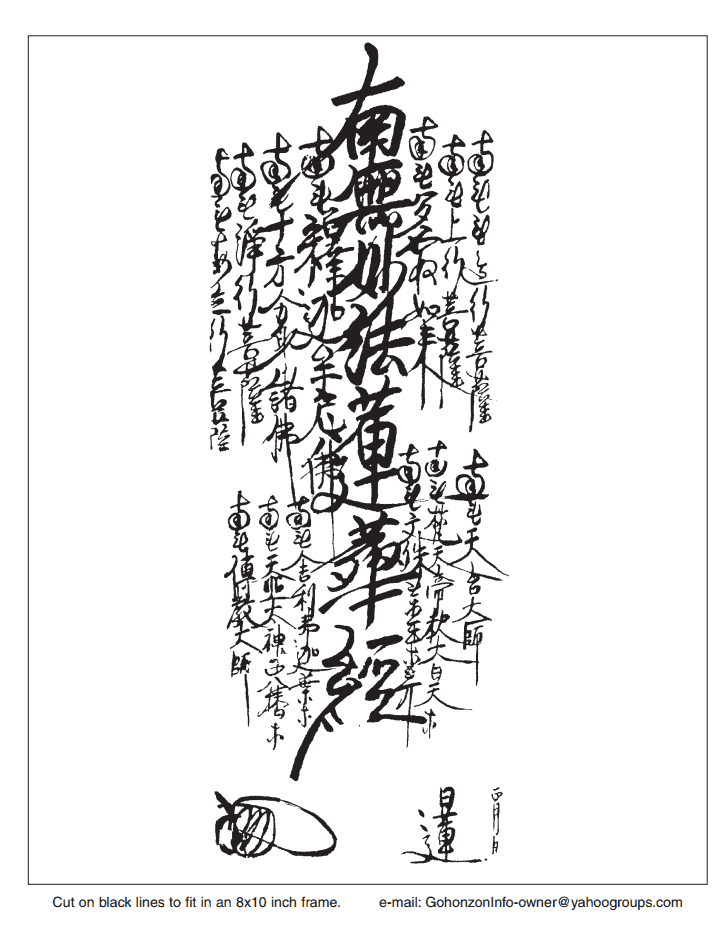 南無無邊行菩薩
南無上行菩薩
南無多宝如来
南無妙法蓮華經
南無釋迦牟尼佛
南無十方分身諸佛
南無淨行菩薩
南無安立行菩薩
南無天台大師
南無梵天帝釈大日天等
南無文殊
南無舎利弗迦葉等
南無天照太神正八幡等
南無傳教大師
正月 日
日蓮
Cut on black lines to fit in an 8x10 inch frame. e-mail: GohonzonInfo-owner@yahoogroups.com